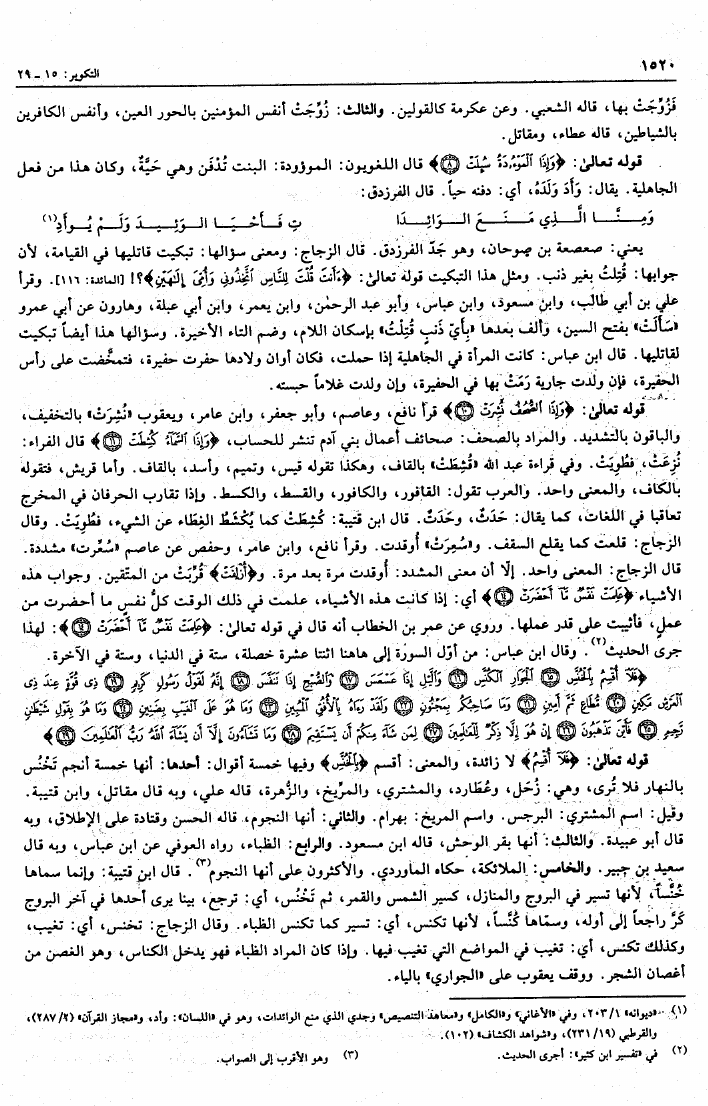 ١٥٢٠
التكوير: ١٥ - ٢٩
فَزُوِّجَتْ بها، قاله الشعبي. وعن عكرمة كالقولين. والثالث: زُوِّجَتْ أنفس المؤمنين بالحور العين، وأنفس الكافرين
بالشياطين، قاله عطاء، ومقاتل.
قوله تعالى: ﴿وَإِذَا الْمَوْءُدَةُ سُئِلَتْ ۝٨﴾ قال اللغويون: الموؤودة: البنت تُدْفَن وهي حَيَّةٌ، وكان هذا من فعل
الجاهلية. يقال: وَأَدَ وَلَدَهُ، أي: دفنه حياً. قال الفرزدق:
وَمِنَّا الَّذِي مَنَعَ الوَائِدَا تِ فَأَحْيَا الوَئِيدَ وَلَمْ يُوأَدِ(١)
يعني: صعصعة بن صوحان، وهو جَدّ الفرزدق. قال الزجاج: ومعنى سؤالها: تبكيت قاتليها في القيامة، لأن
جوابها: قُتِلتُ بغير ذنب. ومثل هذا التبكيت قوله تعالى: ﴿ءَأَنتَ قُلْتَ لِلنَّاسِ اتَّخِذُونِي وَأُمِّيَ إِلَٰهَيْنِ﴾؟! [المائدة: ١١٦]. وقرأ
علي بن أبي طالب، وابن مسعود، وابن عباس، وأبو عبد الرحمٰن، وابن يعمر، وابن أبي عبلة، وهارون عن أبي عمرو
«سَأَلَتْ» بفتح السين، وألف بعدها «بِأَيّ ذَنبٍ قُتِلْتُ» بإسكان اللام، وضم التاء الأخيرة. وسؤالها هذا أيضاً تبكيت
لقاتليها. قال ابن عباس: كانت المرأة في الجاهلية إذا حملت، فكان أوان ولادها حفرت حفيرة، فتمخَّضت على رأس
الحفيرة، فإن ولدت جارية رَمَتْ بها في الحفيرة، وإن ولدت غلاماً حبسته.
قوله تعالى: ﴿وَإِذَا الصُّحُفُ نُشِرَتْ ۝١٠﴾ قرأ نافع، وعاصم، وأبو جعفر، وابن عامر، ويعقوب «نُشِرَتْ» بالتخفيف،
والباقون بالتشديد. والمراد بالصحف: صحائف أعمال بني آدم تنشر للحساب، ﴿وَإِذَا السَّمَاءُ كُشِطَتْ ۝١١﴾ قال الفراء:
نُزِعَتْ، فطُوِيَتْ. وفي قراءة عبد الله «قُشِطَتْ» بالقاف، وهكذا تقوله قيس، وتميم، وأسد، بالقاف. وأما قريش، فتقوله
بالكاف، والمعنى واحد. والعرب تقول: القافور، والكافور، والقسط، والكسط. وإذا تقارب الحرفان في المخرج
تعاقبا في اللغات، كما يقال: حَدَثٌ، وحَدَتٌ. قال ابن قتيبة: كُشِطَتْ كما يُكْشَطُ الغِطَاء عن الشيء، فطُوِيَتْ. وقال
الزجاج: قلعت كما يقلع السقف. و«سُعِرَتْ» أوقدت. وقرأ نافع، وابن عامر، وحفص عن عاصم «سُعِّرت» مشددة.
قال الزجاج: المعنى واحد. إلّا أن معنى المشدد: أوقدت مرة بعد مرة. و﴿أُزْلِفَتْ﴾ قُرِّبَتْ من المتّقين. وجواب هذه
الأشياء ﴿عَلِمَتْ نَفْسٌ مَّا أَحْضَرَتْ ۝١٤﴾ أي: إذا كانت هذه الأشياء، علمت في ذلك الوقت كلُّ نفسٍ ما أحضرت من
عملٍ، فأثيبت على قدر عملها. وروي عن عمر بن الخطاب أنه قال في قوله تعالى: ﴿عَلِمَتْ نَفْسٌ مَّا أَحْضَرَتْ ۝١٤﴾: لهذا
جرى الحديث(٢). وقال ابن عباس: من أوّل السورة إلى هاهنا اثنتا عشرة خصلة، ستة في الدنيا، وستة في الآخرة.
﴿فَلَا أُقْسِمُ بِالْخُنَّسِ ۝١٥ الْجَوَارِ الْكُنَّسِ ۝١٦ وَاللَّيْلِ إِذَا عَسْعَسَ ۝١٧ وَالصُّبْحِ إِذَا تَنَفَّسَ ۝١٨ إِنَّهُ لَقَوْلُ رَسُولٍ كَرِيمٍ ۝١٩ ذِي قُوَّةٍ عِندَ ذِي
الْعَرْشِ مَكِينٍ ۝٢٠ مُّطَاعٍ ثَمَّ أَمِينٍ ۝٢١ وَمَا صَاحِبُكُم بِمَجْنُونٍ ۝٢٢ وَلَقَدْ رَءَاهُ بِالْأُفُقِ الْمُبِينِ ۝٢٣ وَمَا هُوَ عَلَى الْغَيْبِ بِضَنِينٍ ۝٢٤ وَمَا هُوَ بِقَوْلِ شَيْطَٰنٍ
رَّجِيمٍ ۝٢٥ فَأَيْنَ تَذْهَبُونَ ۝٢٦ إِنْ هُوَ إِلَّا ذِكْرٌ لِّلْعَٰلَمِينَ ۝٢٧ لِمَن شَاءَ مِنكُمْ أَن يَسْتَقِيمَ ۝٢٨ وَمَا تَشَاءُونَ إِلَّا أَن يَشَاءَ اللَّهُ رَبُّ الْعَٰلَمِينَ ۝٢٩﴾
قوله تعالى: ﴿فَلَا أُقْسِمُ﴾ لا زائدة، والمعنى: أقسم ﴿بِالْخُنَّسِ﴾ وفيها خمسة أقوال: أحدها: أنها خمسة أنجم تَخْنُس
بالنهار فلا تُرى، وهي: زُحَل، وعُطَارد، والمشتري، والمرِّيخ، والزُّهرة، قاله علي، وبه قال مقاتل، وابن قتيبة.
وقيل: اسم المشتري: البرجس. واسم المريخ: بهرام. والثاني: أنها النجوم، قاله الحسن وقتادة على الإطلاق، وبه
قال أبو عبيدة. والثالث: أنها بقر الوحش، قاله ابن مسعود. والرابع: الظباء، رواه العوفي عن ابن عباس، وبه قال
سعيد بن جبير. والخامس: الملائكة، حكاه الماوردي. والأكثرون على أنها النجوم(٣). قال ابن قتيبة: وإنما سماها
خُنَّساً، لأنها تسير في البروج والمنازل، كسير الشمس والقمر، ثم تَخْنُس، أي: ترجع، بينا يرى أحدها في آخر البروج
كَرَّ راجعاً إلى أوله، وسمّاها كُنَّساً، لأنها تكنس، أي: تسير كما تكنس الظباء. وقال الزجاج: تخنس، أي: تغيب،
وكذلك تكنس، أي: تغيب في المواضع التي تغيب فيها. وإذا كان المراد الظباء فهو يدخل الكناس، وهو الغصن من
أغصان الشجر. ووقف يعقوب على «الجواري» بالياء.
(١) «ديوانه» ٢٠٣/١، وفي «الأغاني» و«الكامل» و«معاهد التنصيص» وجدي الذي منع الوائدات، وهو في «اللسان»: وأد، و«مجاز القرآن» (٢٨٧/٢)،
والقرطبي (٢٣١/١٩)، و«شواهد الكشاف» (١٠٢).
(٢) في «تفسير ابن كثير»: أجرى الحديث. (٣) وهو الأقرب إلى الصواب.